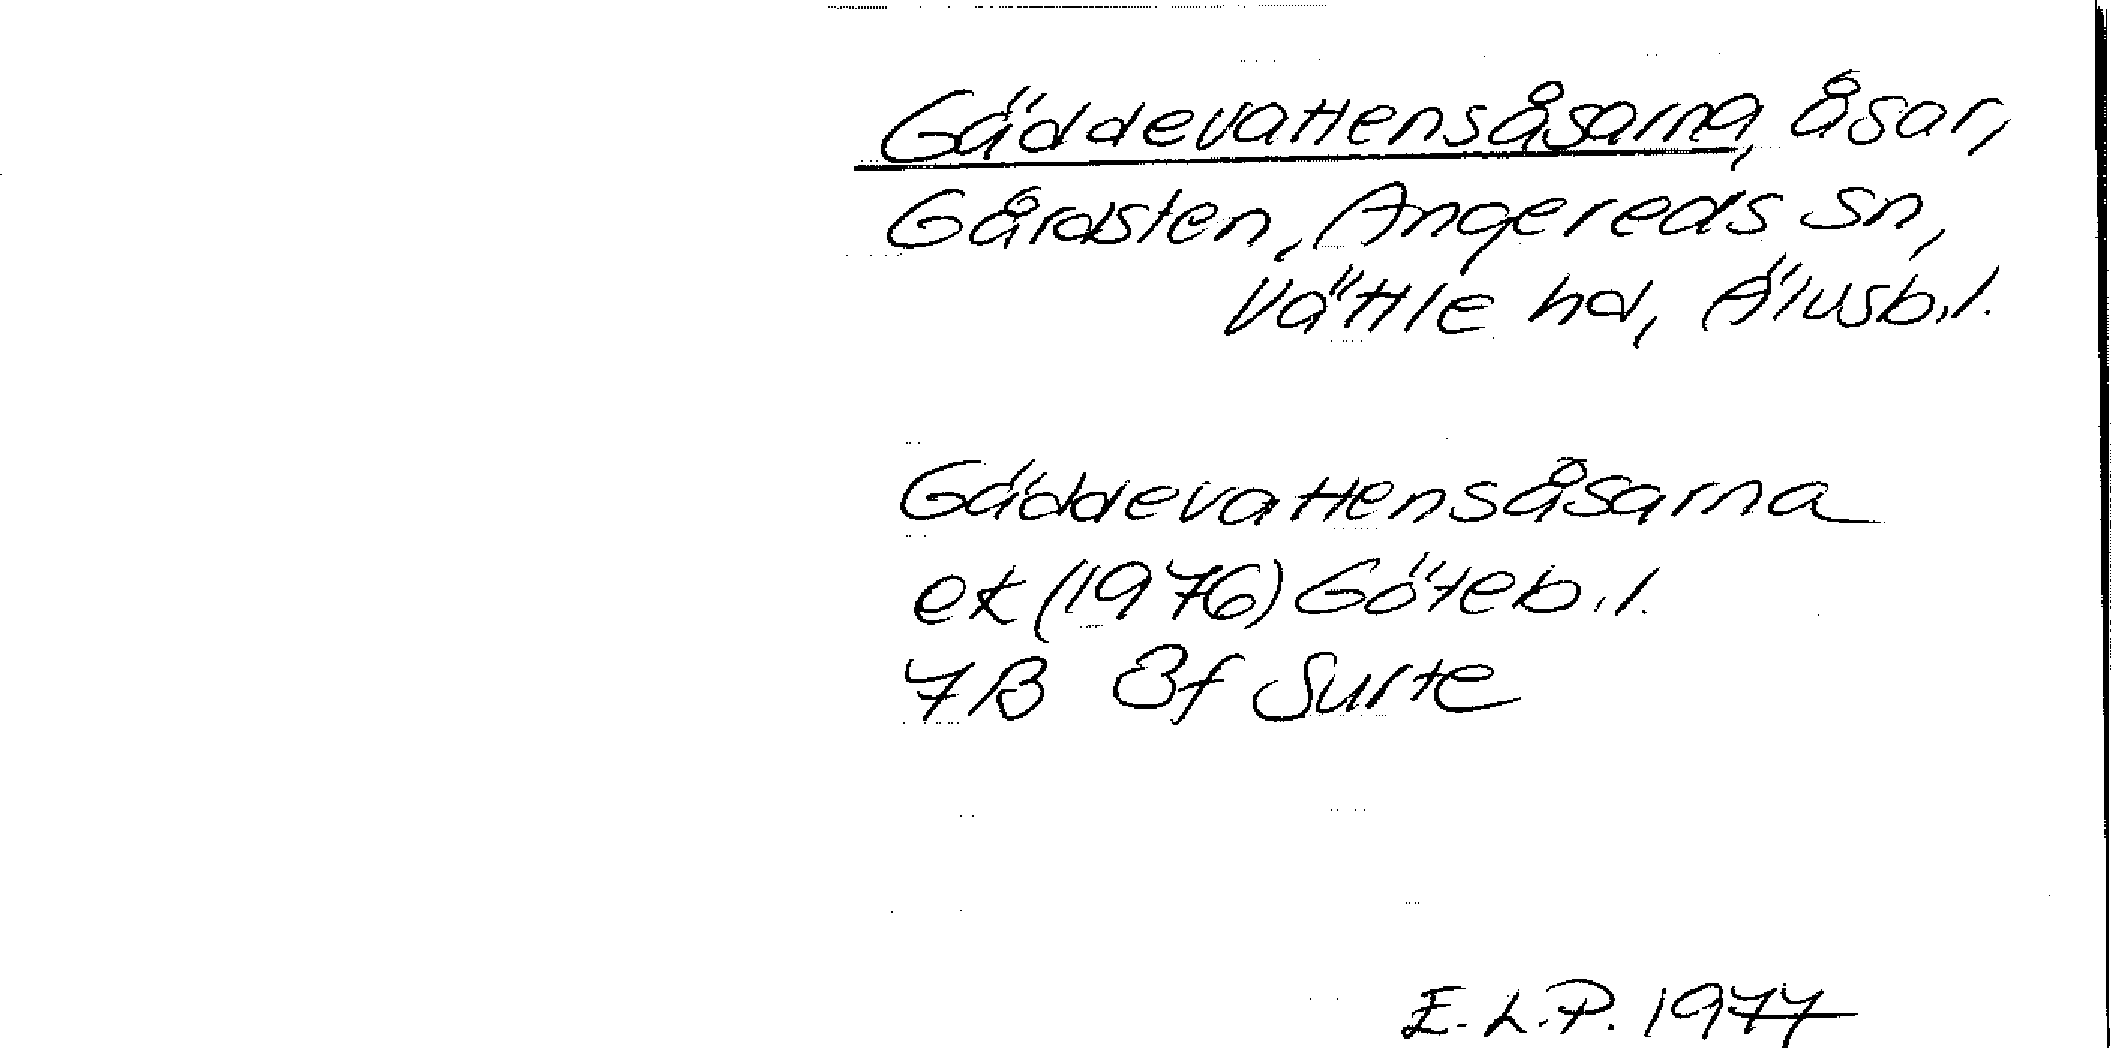 Gäddevattensåsarna, åsar,
Gårdsten, Angereds sn,
Vättle hd, Älvsb.l.
Gäddevattensåsarna
ek (1976) Göteb.l.
7B 8f Surte
E.L.P. 1977